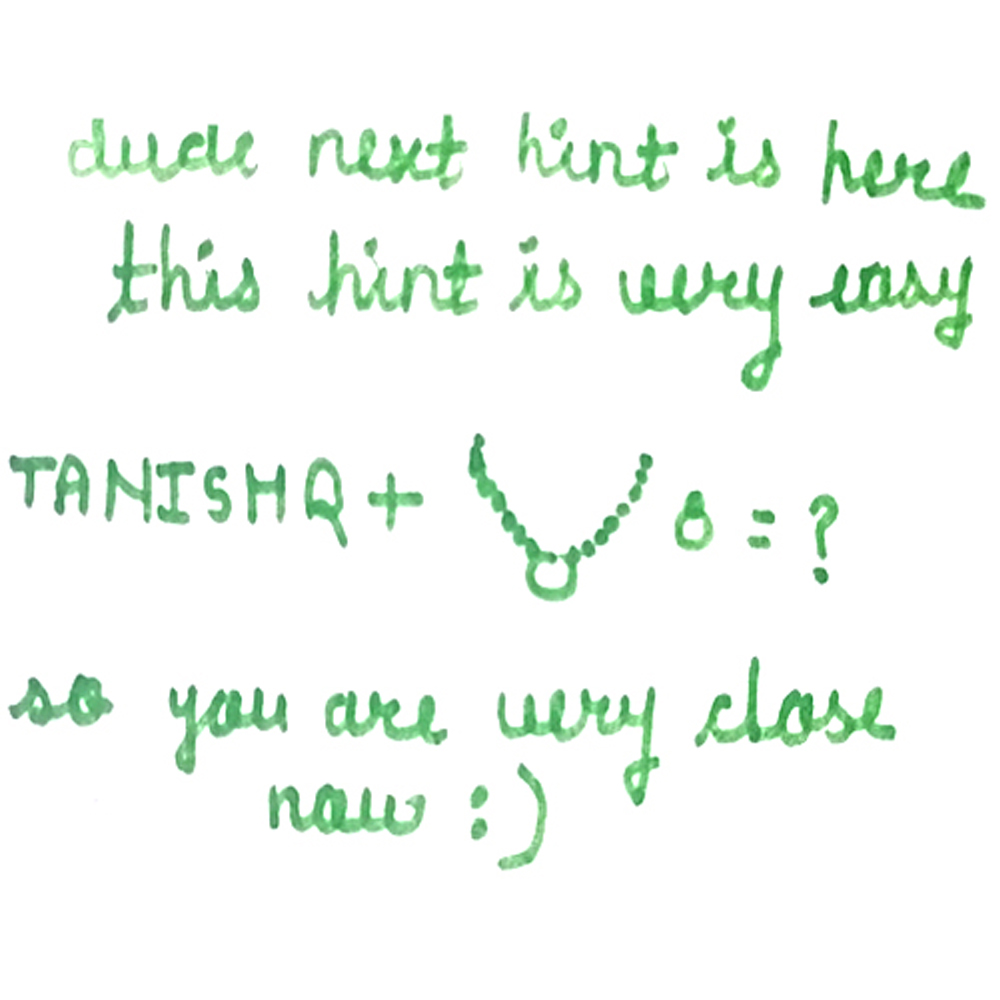 dude next hint is here
this hint is very easy
TANISHQ + = ?
so you are very close
now :)